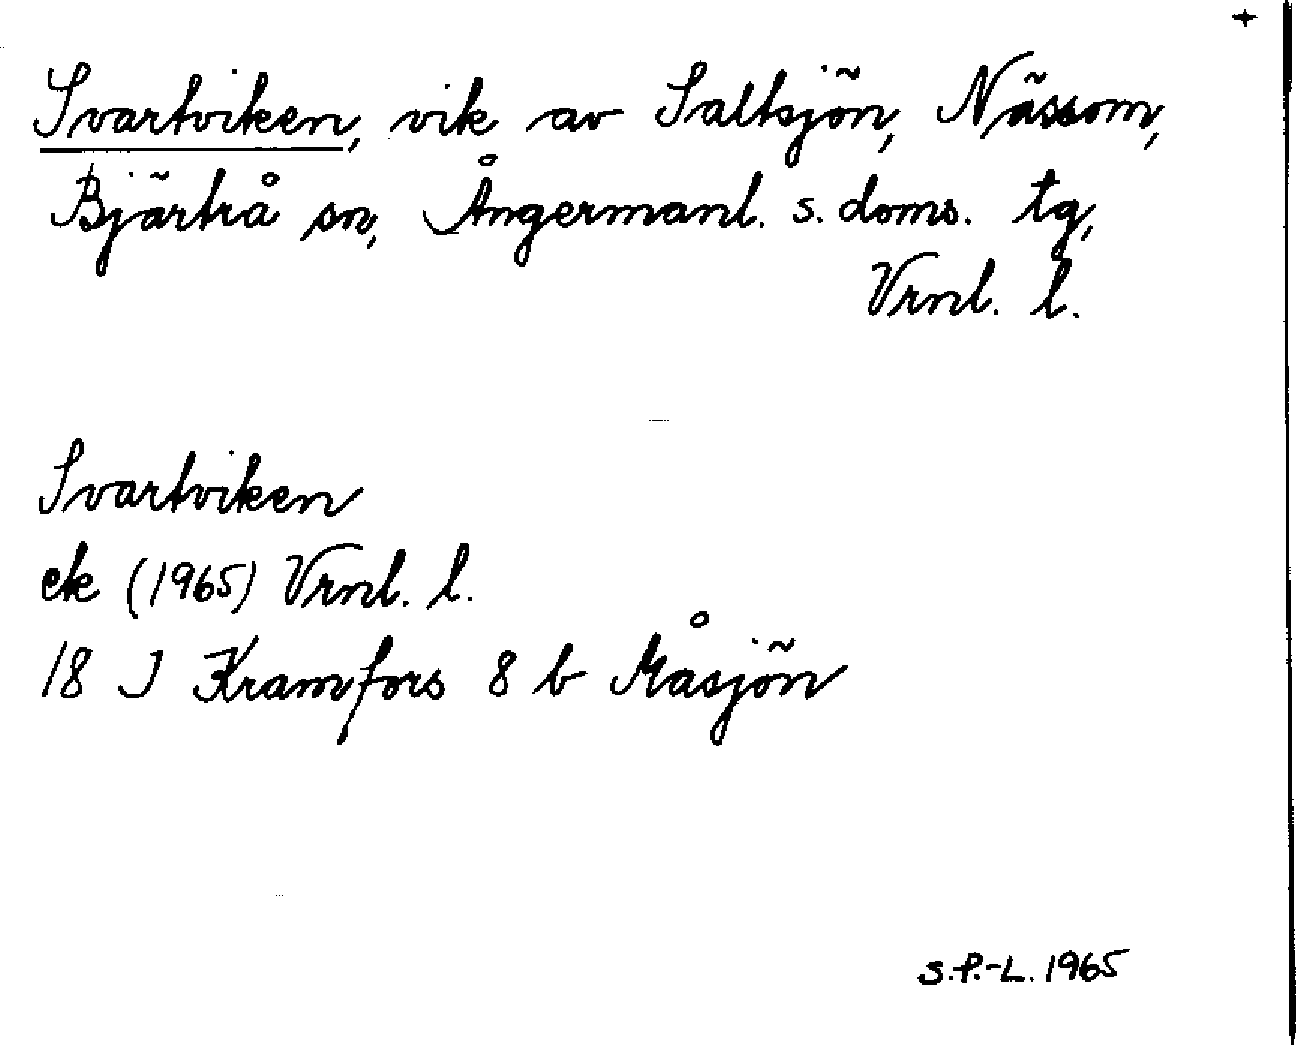 Svartviken, vik av Saltsjön, Nässom,
Bjärtrå sn, Ångermanl. s. doms. tg,
Vrnl. l.
Svartviken
ek (1965) Vrnl. l.
18 J Kramfors 8 b Måsjön
S.P.-L. 1965